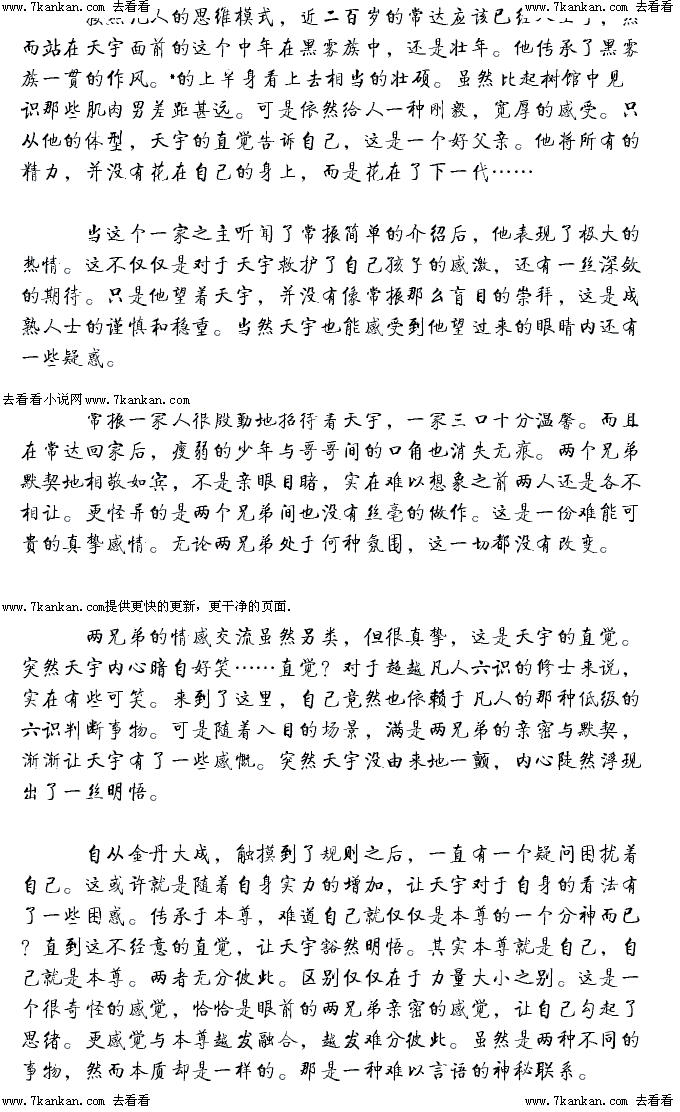 www.7kankan.com 去看看 www.7kankan.com 去看看 www.7kankan.com 去看看
按照凡人的思维模式，近二百岁的常达应该已经入土了，然
而站在天宇面前的这个中年在黑雾族中，还是壮年。他传承了黑雾
族一贯的作风。*的上半身看上去相当的壮硕。虽然比起树馆中见
识那些肌肉男差距甚远。可是依然给人一种刚毅，宽厚的感受。只
从他的体型，天宇的直觉告诉自己，这是一个好父亲。他将所有的
精力，并没有花在自己的身上，而是花在了下一代……
当这个一家之主听闻了常振简单的介绍后，他表现了极大的
热情。这不仅仅是对于天宇救护了自己孩子的感激，还有一丝深敛
的期待。只是他望着天宇，并没有像常振那么盲目的崇拜，这是成
熟人士的谨慎和稳重。当然天宇也能感受到他望过来的眼睛内还有
一些疑惑。
去看看小说网www.7kankan.com
常振一家人很殷勤地招待着天宇，一家三口十分温馨。而且
在常达回家后，瘦弱的少年与哥哥间的口角也消失无痕。两个兄弟
默契地相敬如宾，不是亲眼目睹，实在难以想象之前两人还是各不
相让。更怪异的是两个兄弟间也没有丝毫的做作。这是一份难能可
贵的真挚感情。无论两兄弟处于何种氛围，这一切都没有改变。
www.7kankan.com提供更快的更新，更干净的页面.
两兄弟的情感交流虽然另类，但很真挚，这是天宇的直觉。
突然天宇内心暗自好笑……直觉？对于超越凡人六识的修士来说，
实在有些可笑。来到了这里，自己竟然也依赖于凡人的那种低级的
六识判断事物。可是随着入目的场景，满是两兄弟的亲密与默契，
渐渐让天宇有了一些感慨。突然天宇没由来地一颤，内心陡然浮现
出了一丝明悟。
自从金丹大成，触摸到了规则之后，一直有一个疑问困扰着
自己。这或许就是随着自身实力的增加，让天宇对于自身的看法有
了一些困惑。传承于本尊，难道自己就仅仅是本尊的一个分神而已
？直到这不经意的直觉，让天宇豁然明悟。其实本尊就是自己，自
己就是本尊。两者无分彼此。区别仅仅在于力量大小之别。这是一
个很奇怪的感觉，恰恰是眼前的两兄弟亲密的感觉，让自己勾起了
思绪。更感觉与本尊越发融合，越发难分彼此。虽然是两种不同的
事物，然而本质却是一样的。那是一种难以言语的神秘联系。
www.7kankan.com 去看看 www.7kankan.com 去看看 www.7kankan.com 去看看